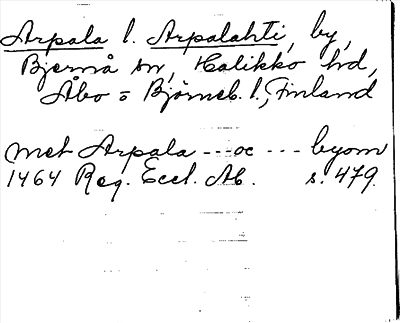 Arpala l. Arpalahti, by,
Bjernå sn, Halikko hd,
Åbo = Björneb. l., Finland
met Arpala --- oc --- byom
1464 Reg. Eccl. Ab. s. 479.